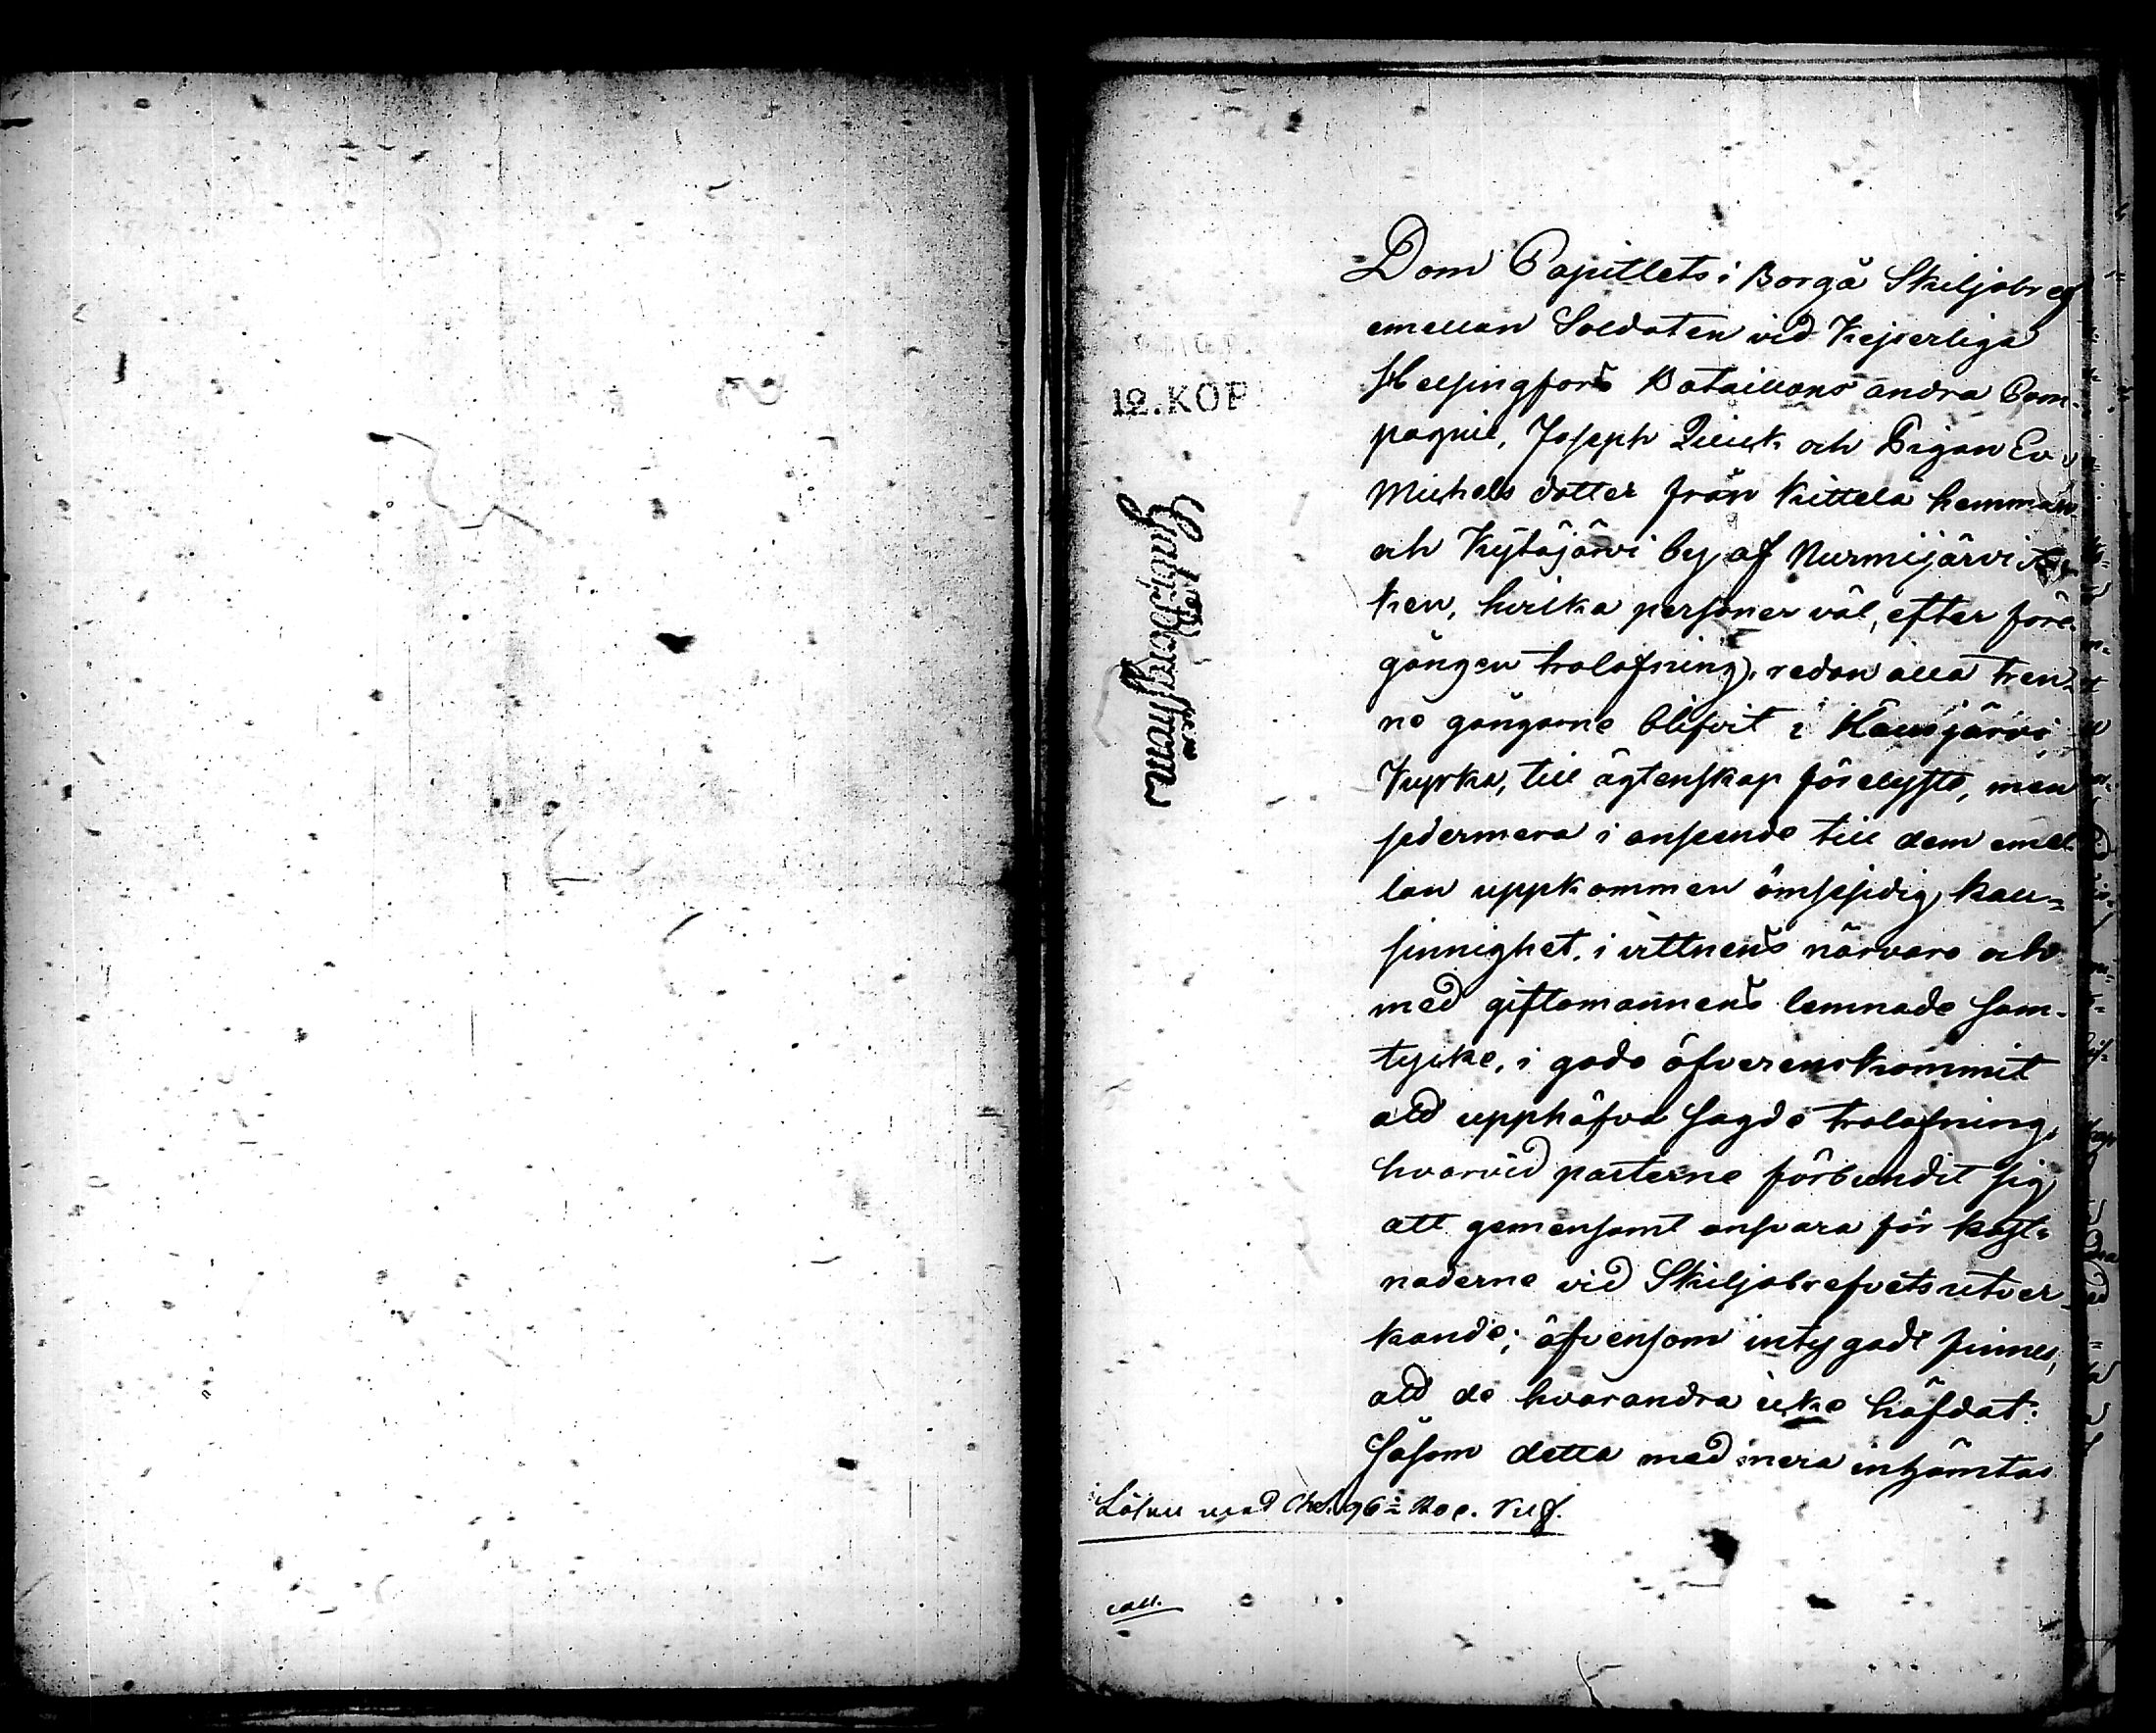 Dom Capitlets i Borgå Skiljobref
emellan Soldaten vid Kejserliga
Helsingfors Bataillons andra Com-
pagnie, Joseph Quick och Pigan Eva
Michels dotter från Kittelä hemman
och Kytäjärvi by af Nurmijärvi
ken, hvilka personer väl, efter före-
gången trolofning, redan alla tren-
ne gångorne blifvit i Hausjärvi
Kyrka, till ägtenskap förelyste, men
sedermera i anseende till dem emel-
lan uppkommen ömsesidig kall-
sinnighet, i vittnens närvaro och
med giftomannens lemnade sam-
tycke, i godo öfverenskommit
att upphäfva sagde trolofning,
hvarvid parterne förbundit sig
att gemensamt ansvara för kost-
naderne vid Skiljobrefvets utver-
kande; äfvensom intygadt finnes,
att de hvarandra icke häfdat:
Såsom detta med mera inhämtas
12. KOP
Lösen med 96 Kop.
coll.